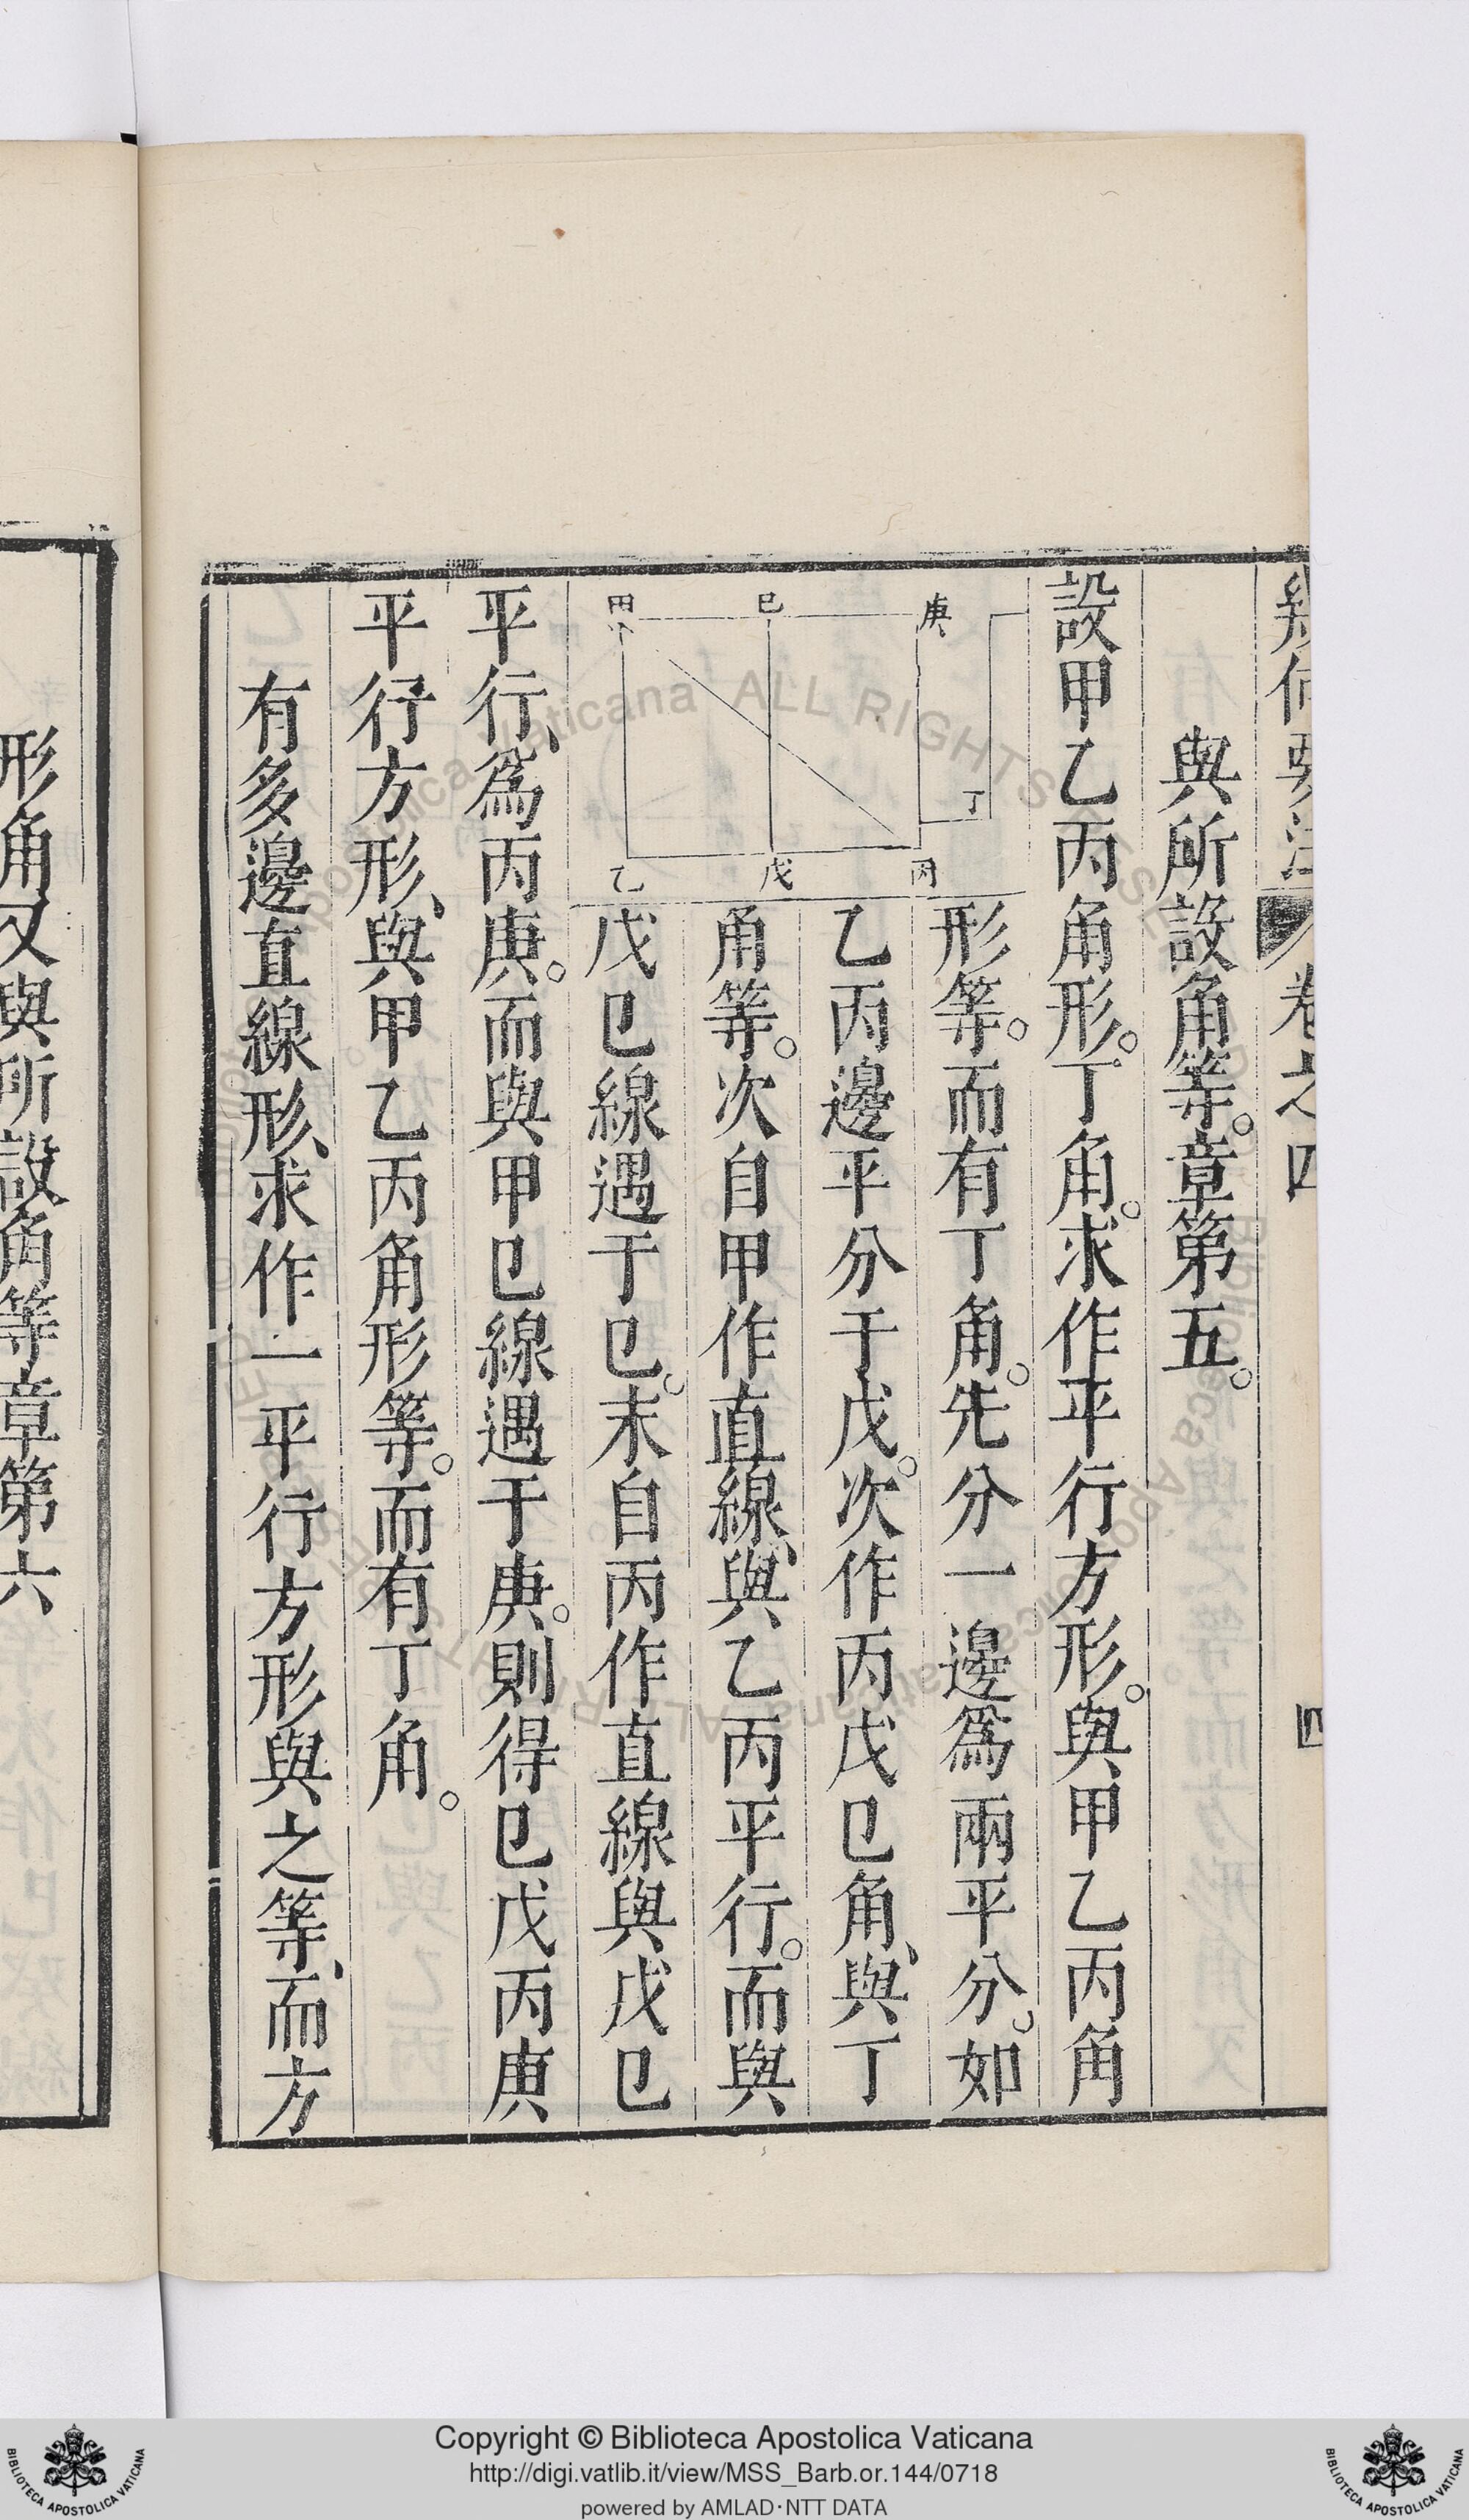 幾何要法 卷之四 四
與所設角等。章第五。
設甲乙丙角形。丁角。求作平行方形。與甲乙丙角
形等。而有丁角。先分一邊爲兩平分。如
乙丙邊平分于戊。次作丙戊巳角、與丁
角等。次自甲作直線、與乙丙平行。而與
戊巳線遇于巳。末自丙作直線與戊巳
平行、爲丙庚。而與甲巳線遇于庚。則得巳戊丙庚
平行方形、與甲乙丙角形等。而有丁角。
有多邊直線形、求作一平行方形與之等、而方
庚 巳 甲
丁
丙 戊 乙
形角又與所設角等章第六
Copyright © Biblioteca Apostolica Vaticana
http://digi.vatlib.it/view/MSS_Barb.or.144/0718
powered by AMLAD·NTT DATA
BIBLIOTECA APOSTOLICA VATICANA
BIBLIOTECA APOSTOLICA VATICANA